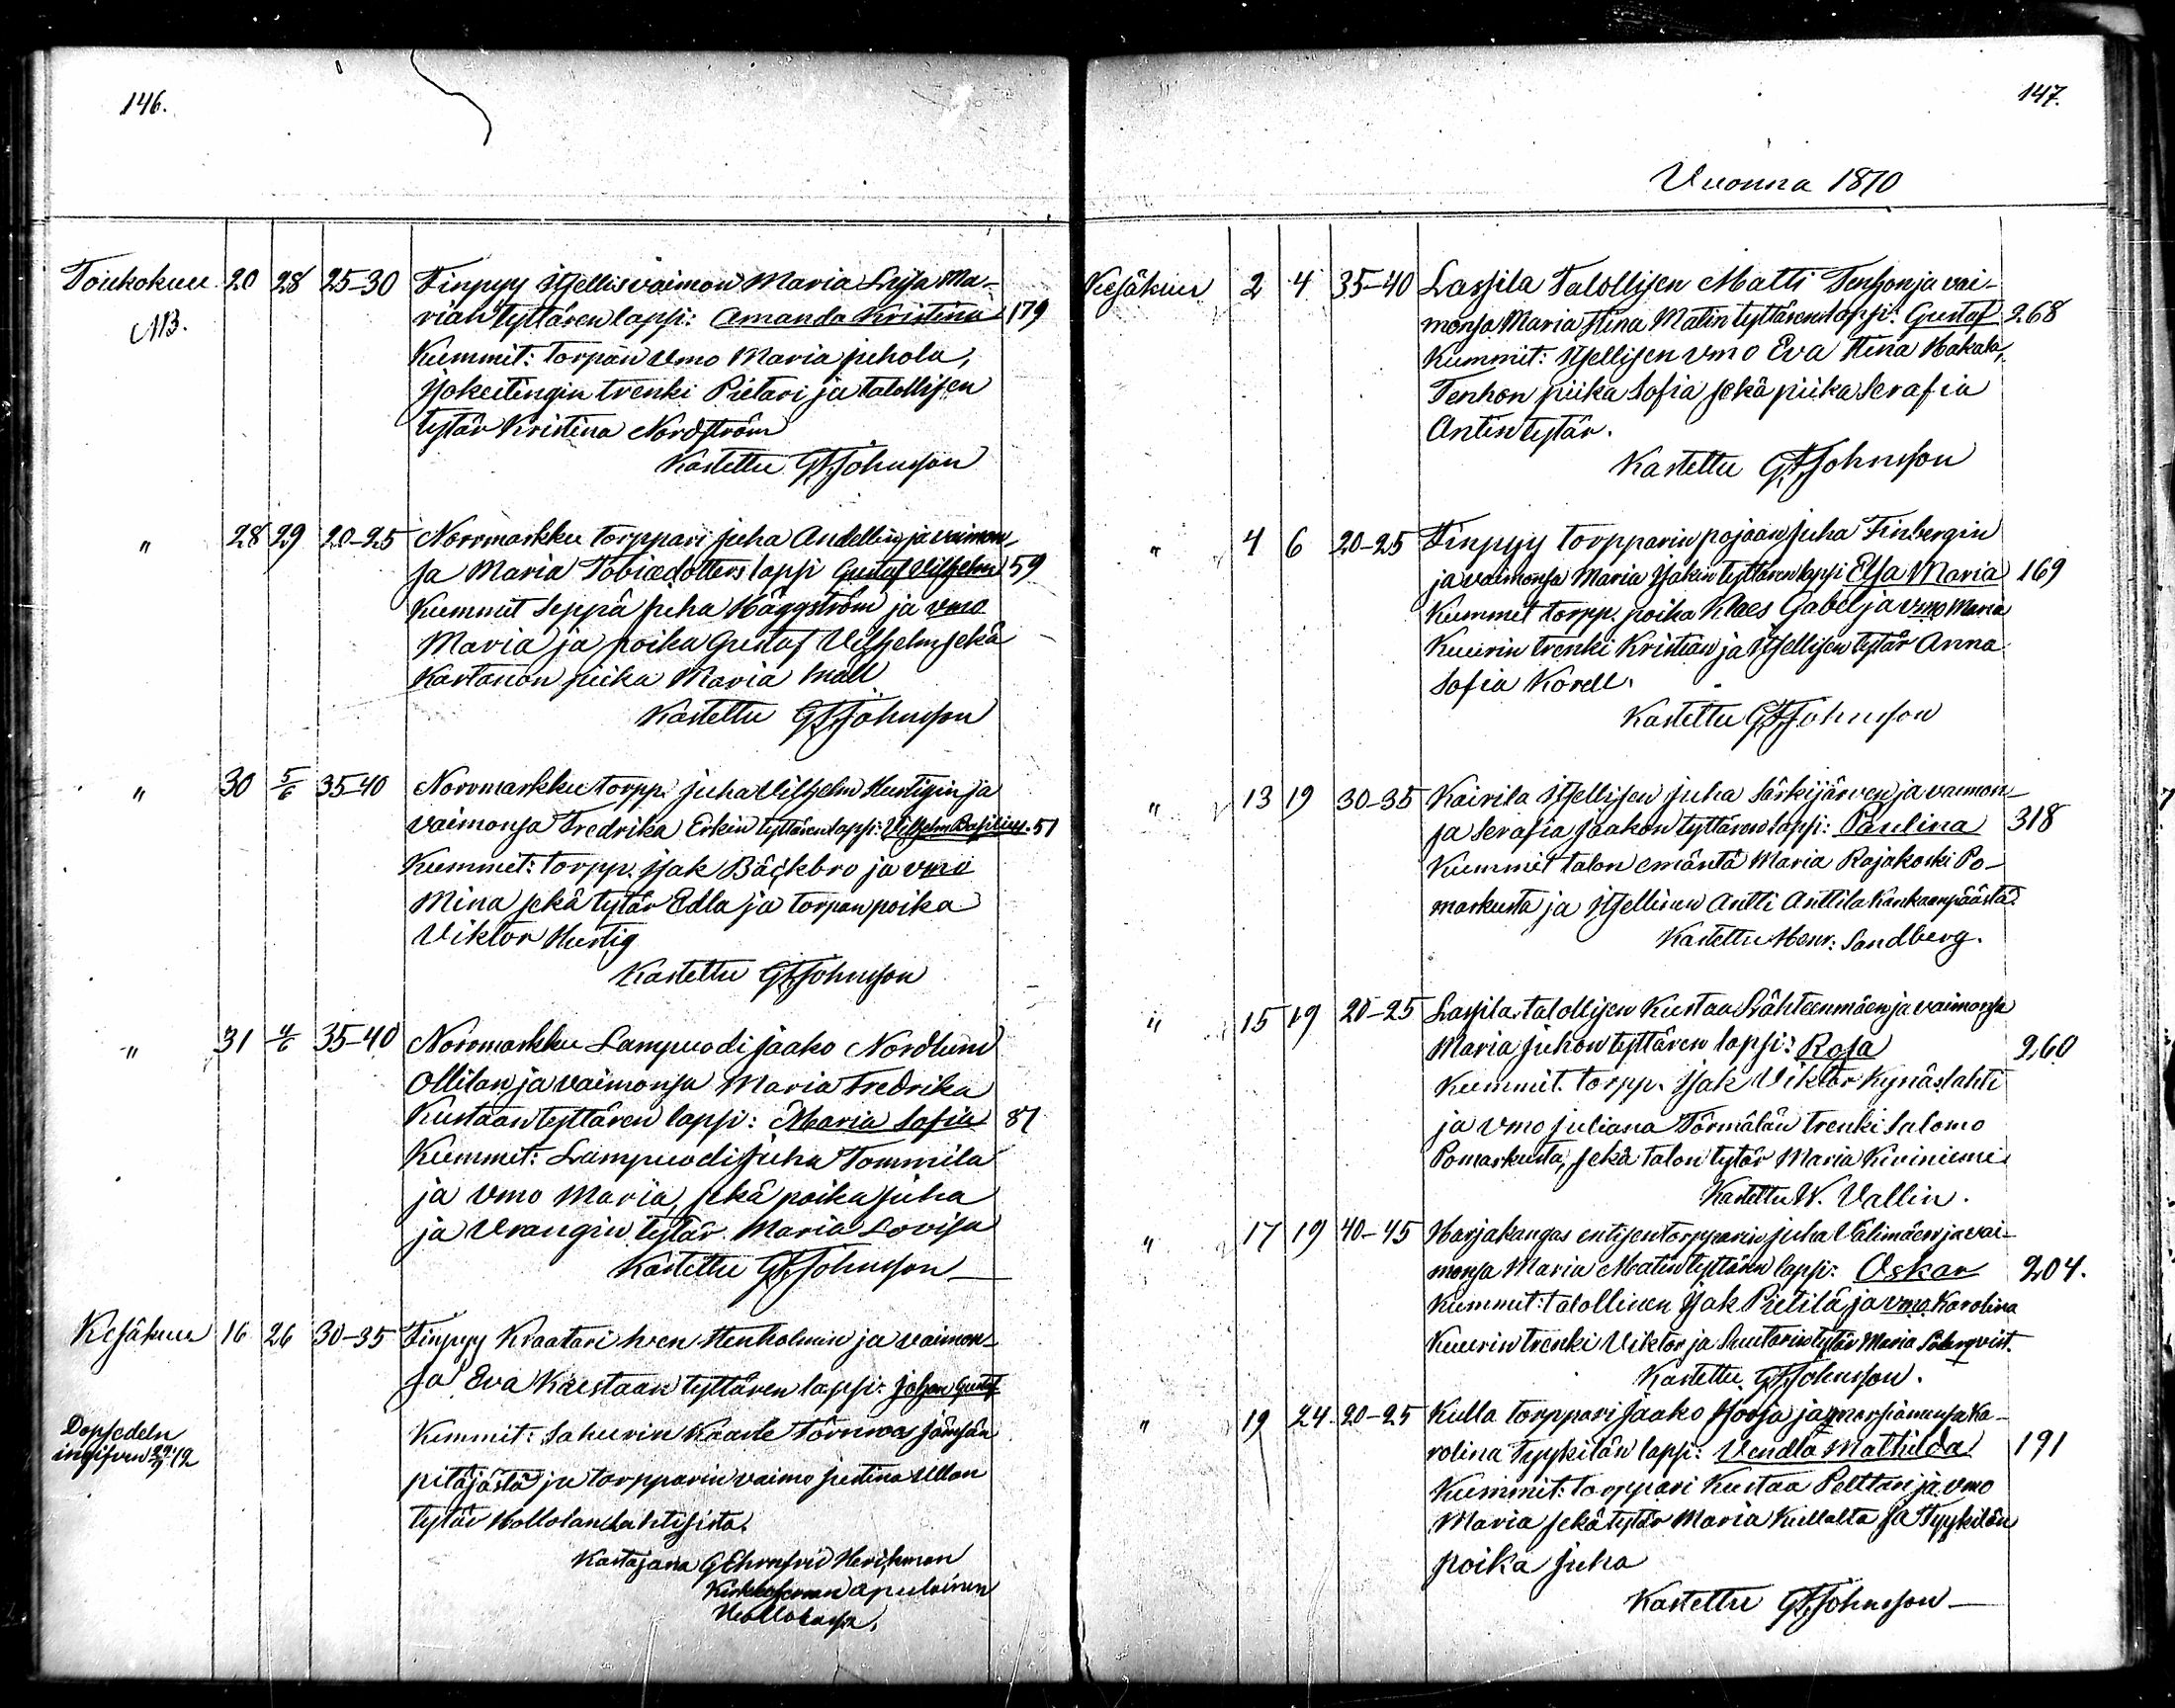 146.
Toukokuu 20 28 25-30 Finpyy Itsellisvaimon Maria Lisa Ma-
NB. rian tyttären lapsi: Amanda Kristina 179
Kummit: Torpan Vmo Maria Juhola,
Isokeitingin trenki Pietari ja talollisen
tytär Kristina Nordström
Kastettu GFJohnsson
" 28 29 20-25 Norrmarkku torppari Juha Andellin ja vaimon-
sa Maria Tobiædotters lapsi Gustaf Vilhelm 59
Kummit Seppä Juha Häggström ja vmo
Maria ja poika Gustaf Vilhelm sekä
Kartanon piika Maria Mall
Kastettu GFJohnsson
" 30 5/6 35-40 Norrmarkku torpp. Juha Vilhelm Hurtigin ja
vaimonsa Fredrika Erkin tyttären lapsi: Vilhelm Basilius. 51
Kummit: torpp. Isak Bäckbro ja vmo
Mina sekä tytär Edla ja torpan poika
Viktor Hurtig
Kastettu GFJohnsson
" 31 4/6 35-40 Norrmarkku Lampuodi Jaako Nordlund
Ollilan ja vaimonsa Maria Fredrika
Kustaan tyttären lapsi: Maria Sofia 87
Kummit: Lampuodi Juha Tommila
ja vmo Maria, sekä poika Juha
ja Vrangin tytär Maria Lovisa
Kastettu GFJohnsson
Kesäkuu 16 26 30-35 Finpyy Kraatari Sven Stenholmin ja vaimon-
sa Eva Kustaan tyttären lapsi: Johan Gustaf
Dopsedeln Kummit: Sahurin Kaarle Törnroos Jämsän
ingifven pitäjästä ja torpparin vaimo Justina Ullan
tytär Hollolan Lahtisista.
Kastajana G Ehrnfrid Herckman
Kirkkoherran apulainen
Hollolassa.
147.
Vuonna 1870
Kesäkuu 2 4 35-40 Lassila Talollisen Matti Tenhon ja vai-
monsa Maria Stina Matin tyttären lapsi: Gustaf 268
Kummit: Itsellisen vmo Eva Stina Hakala,
Tenhon piika Sofia sekä piika Serafia
Antin tytär.
Kastettu GFJohnsson
" 4 6 20-25 Finpyy torpparin pojaan Juha Finbergin
ja vaimonsa Maria Isakin tyttären lapsi Elsa Maria 169
Kummit torpp. poika Klaes Gabel ja vmo Maria
Kuurin trenki Kristian ja Itsellisen tytär Anna
Sofia Korell.
Kastettu GFJohnsson
" 13 19 30-35 Kairila Itsellisen Juha Särkijärven ja vaimon-
sa Serafia Jaakon tyttären lapsi: Paulina 318
Kummit talon emäntä Maria Rajakoski Po-
markusta ja Itsellinen Antti Anttila Kankaanpäästä.
Kastettu Henr. Sandberg.
" 15 19 20-25 Lassila talollisen Kustaa Lähteenmäen ja vaimonsa
Maria Juhon tyttären lapsi: Rosa 260
Kummit. torpp. Isak Viktor Kynäslahti
ja vmo Juliana Törmälän trenki Salomo
Pomarkusta, sekä talon tytär Maria Kiviniemi
Kastettu W. Vallin.
" 17 19 40-45 Harjakangas entisen torpparin Juha Välimäen ja vai-
monsa Maria Matin tyttären lapsi: Oskar 204.
Kummit: talollinen Isak Pietilä ja vmo Karolina
Kuurin trenki Viktor ja Suutarin tytär Maria Söderqvist.
Kastettu GFJohnsson.
" 19 24 20-25 Kulla torppari Jaako Isooja ja morsiamensa Ka-
rolina Tyykilän lapsi: Vendla Mathilda 191
Kummit: torppari Kustaa Pelttari ja vmo
Maria sekä tytär Maria Kullalta ja Tyykilän
poika Juha
Kastettu GFJohnsson